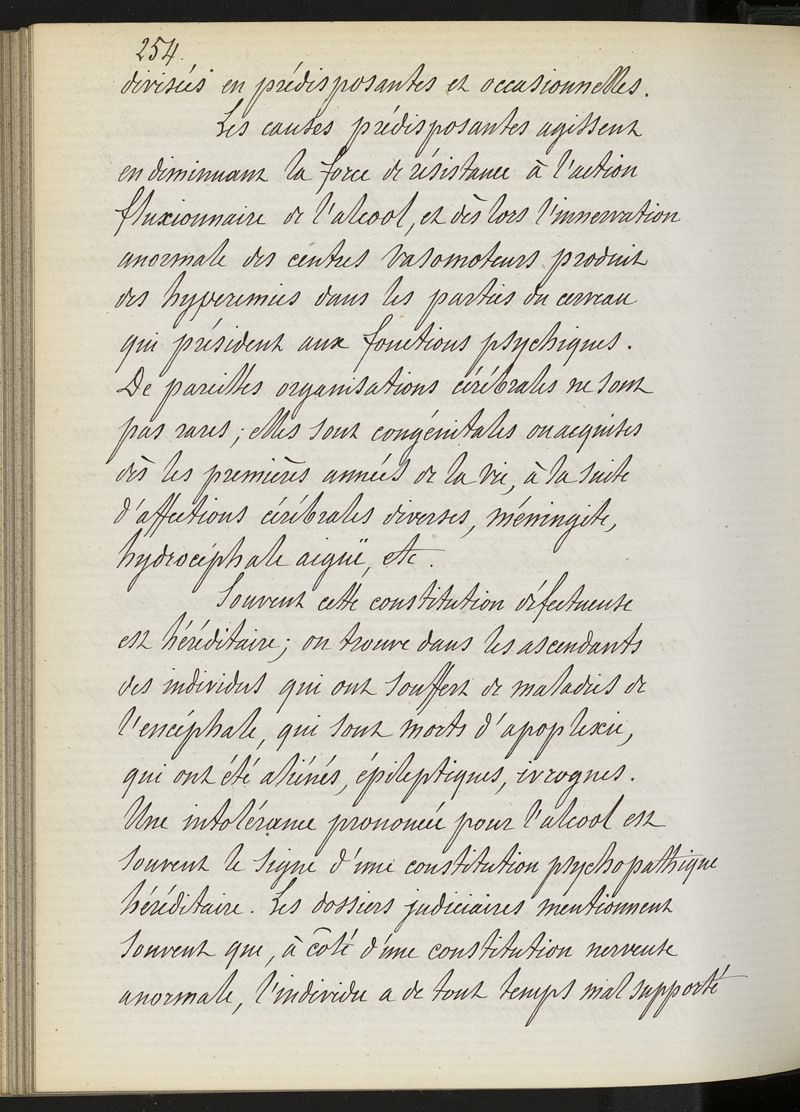 254.
divisées en prédisposantes et occasionnelles.
Les causes prédisposantes agissent
en diminuant la force de résistance à l'action
fluxionnaire de l'alcool, et dès lors l'innervation
anormale des centres vasomoteurs produit
des hyperemies dans les parties du cerveau
qui président aux fonctions psychiques.
De pareilles organisations cérébrales ne sont
pas rares ; elles sont congénitales ou acquises
dès les premières années de la vie, à la suite
d'affections cérébrales diverses, méningite,
hydrocéphale aiguë, etc.
Souvent cette constitution défectueuse
est héréditaire ; on trouve dans les ascendants
des individus qui ont souffert de maladies de
l'encéphale, qui sont morts d'apoplexie,
qui ont été aliénés, épileptiques, ivrognes.
Une intolérance prononcée pour l'alcool est
souvent le signe d'une constitution psychopathique
héréditaire. Les dossiers judiciaires mentionnent
souvent que, à côté d'une constitution nerveuse
anormale, l'individu a de tout temps mal supporté